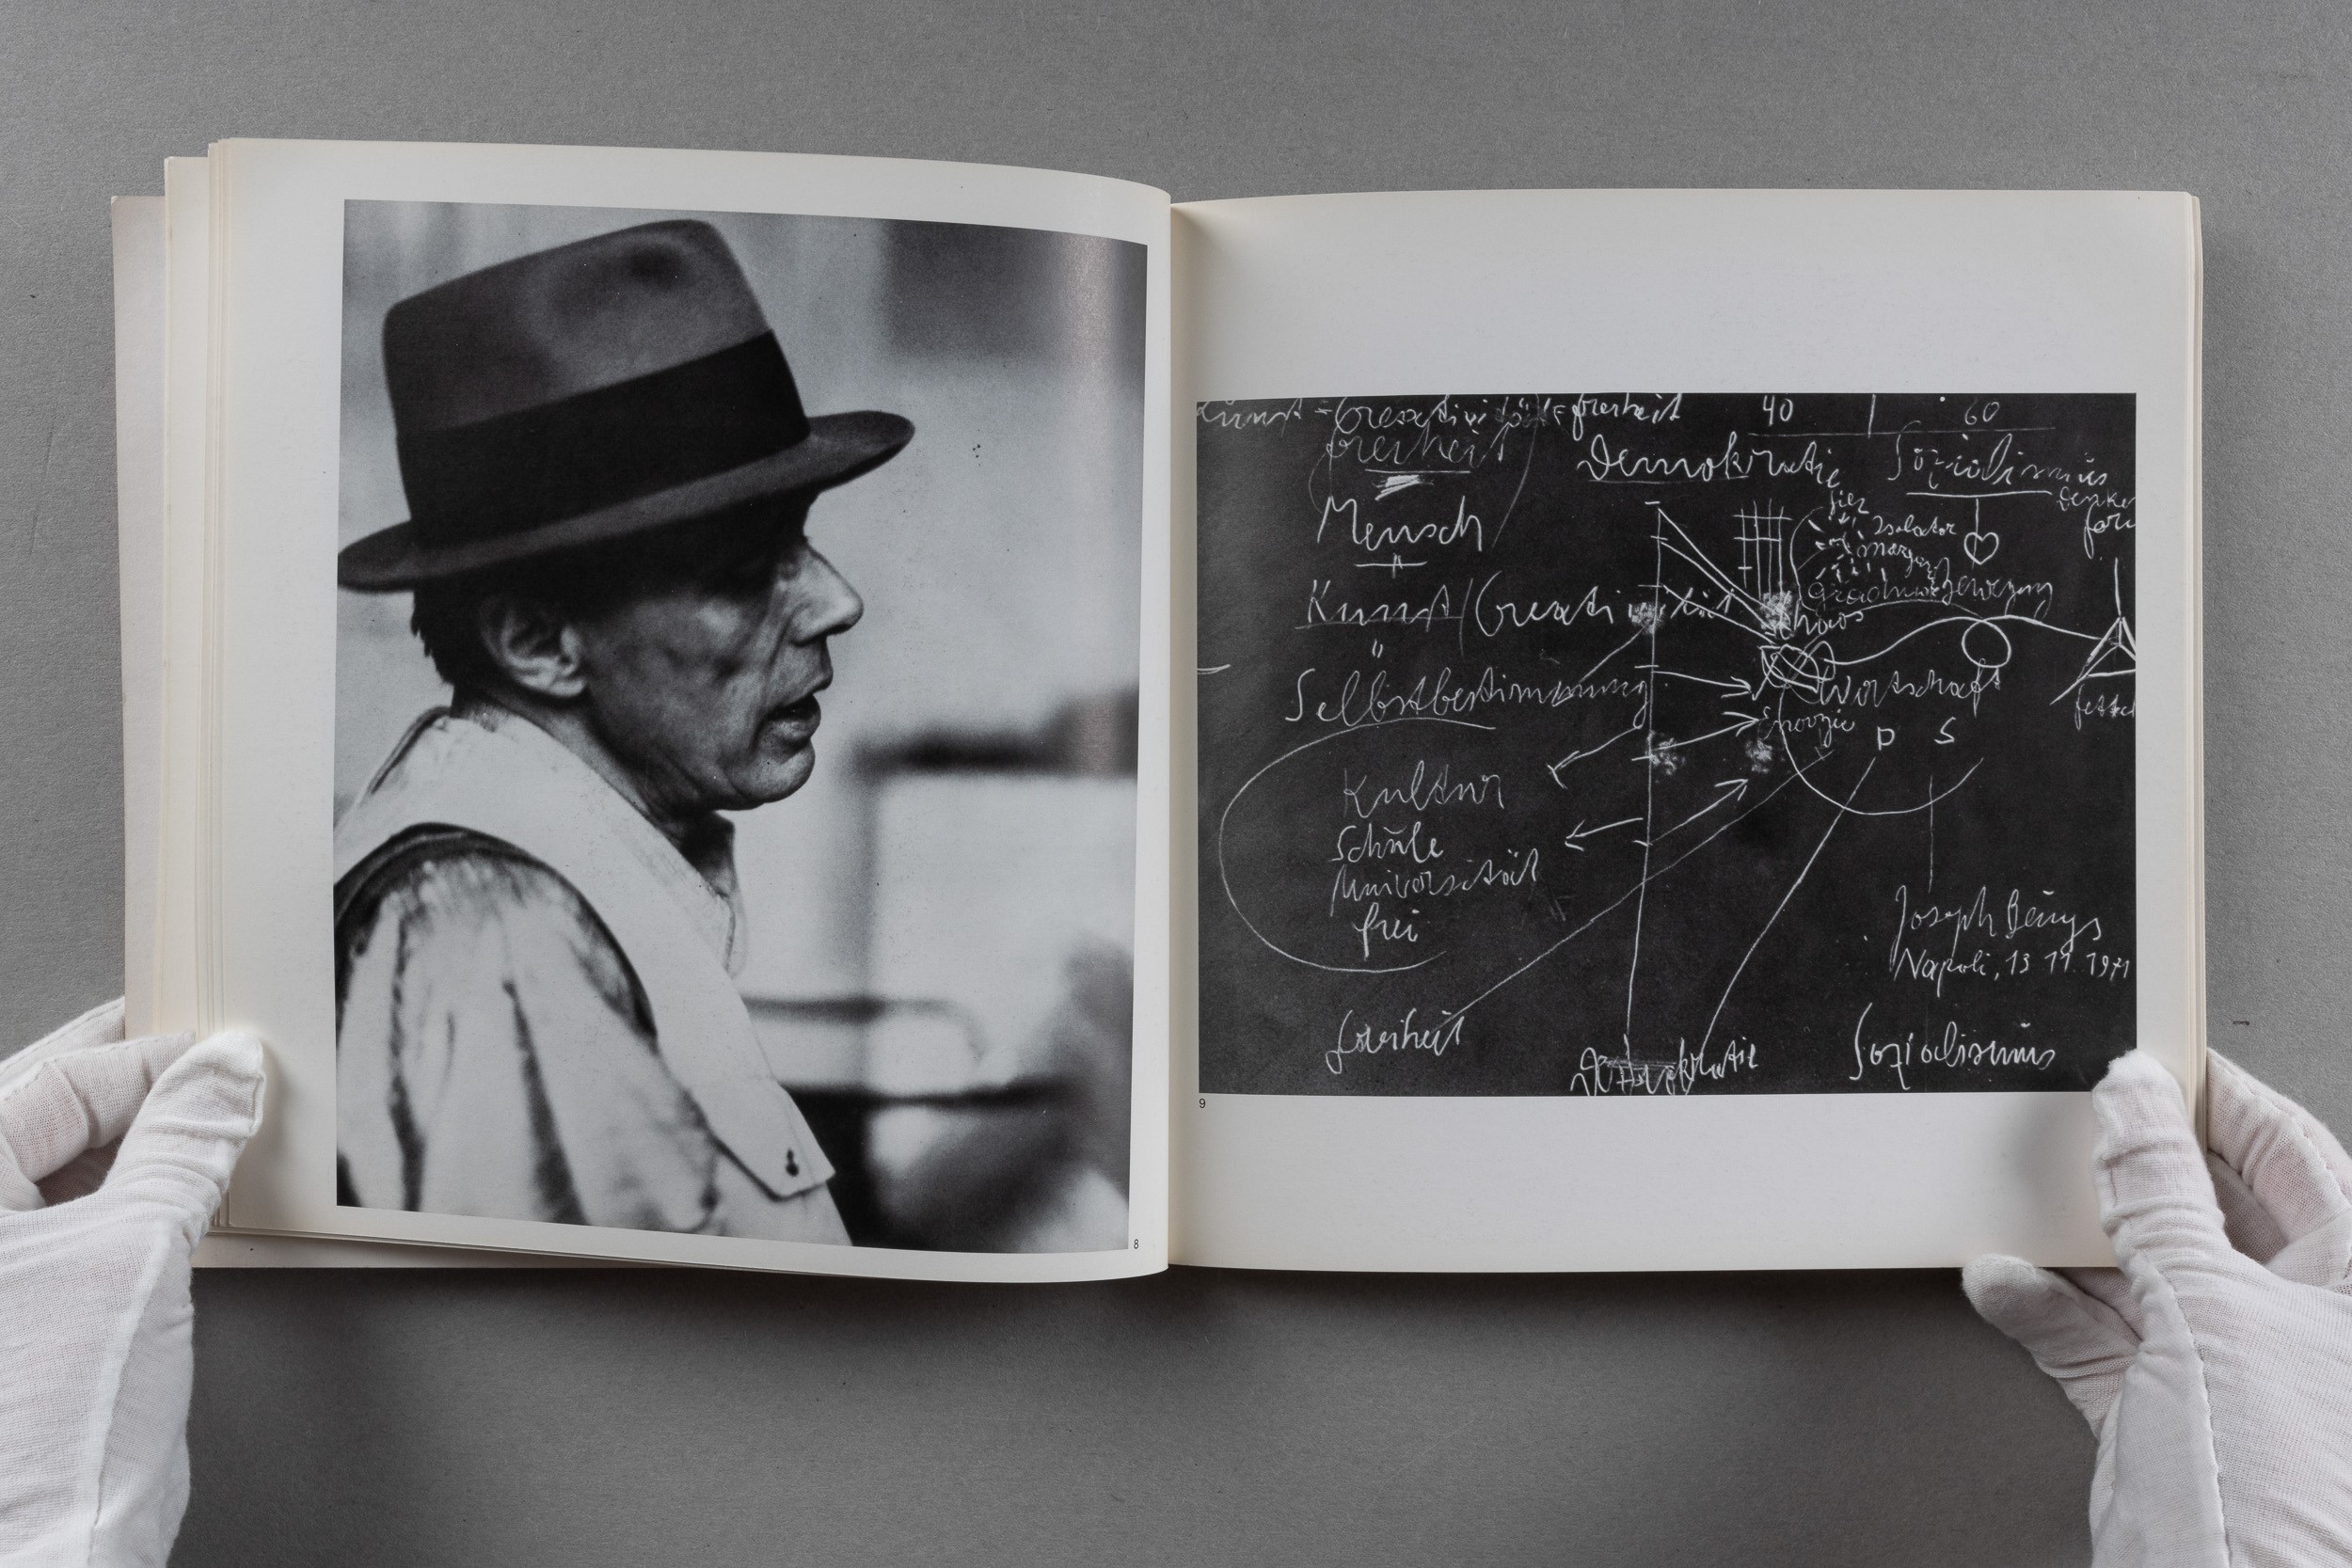 Kunst = Creativität = freiheit
40 60
freiheit
Demokratie Sozialismus
Mensch
Isolator
Kunst / Creativität
Bewegung
Chaos
Selbstbestimmung
Wirtschaft
Energie
D S
Kultur
Schule
Universität
frei
Joseph Beuys
Napoli, 13 11. 1971
freiheit
Demokratie
Sozialismus
8
9